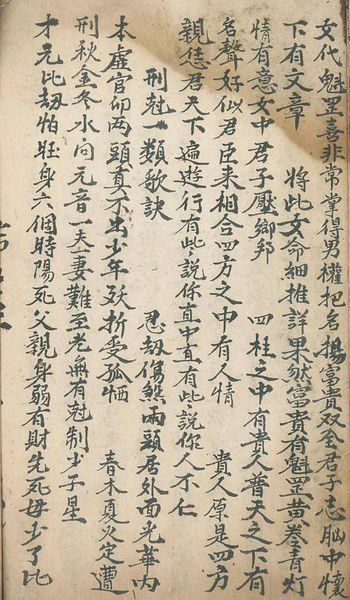 女代魁罡喜非常掌得男權把名揚富貴双全君子志脑中懷
下有文章　将此女命細推詳果然富貴有魁罡苗巻青灯
情有意女中君子壓鄉邦　四柱之中有貴人普天之下有
名聲好似君臣来相合四方之中有人情　貴人原是四方
親恁君天下遍遊行有些說你直中直有些說你人不仁
刑尅一類歌訣　忍劫傷煞兩頭居外面光華内
本虚官卯两頭真不出少年殀折受孤恓　春木夏火定遭
刑秋金冬水向元音一夫妻難至老無有尅制少子星
才元比劫怕旺身六個時陽死父親身弱有財先死母少了比